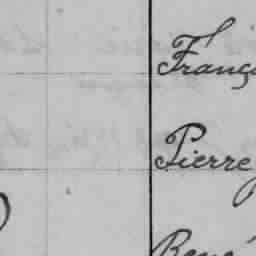 Franç
Pierre
René